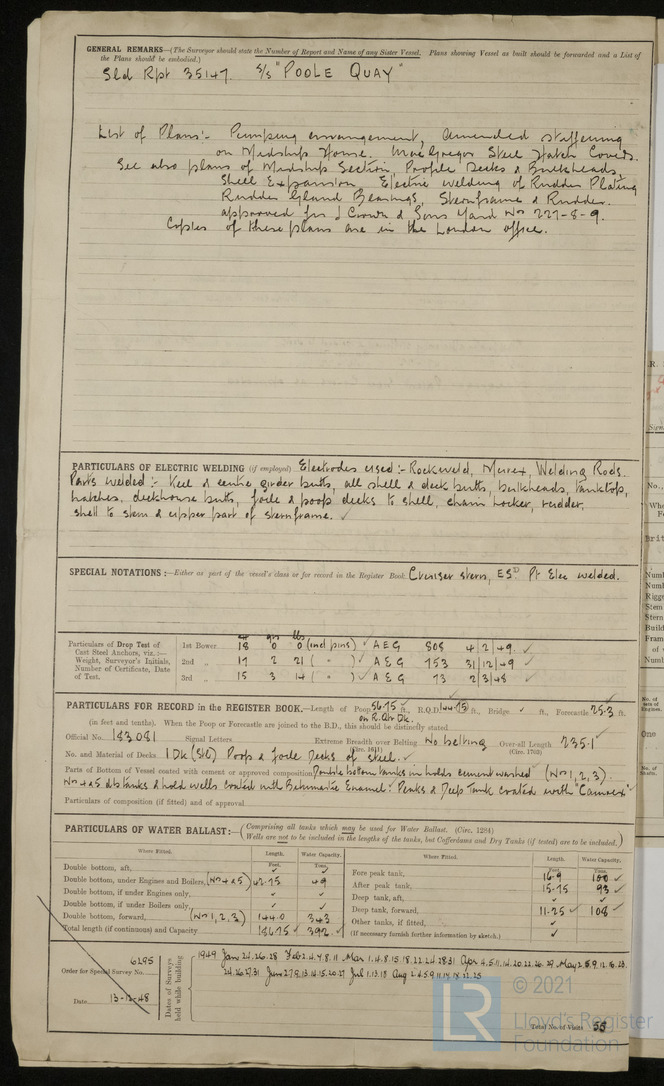 GENERAL REMARKS—(The Surveyor should state the Number of Report and Name of any Sister Vessel. Plans showing Vessel as built should be forwarded and a List of
the Plans should be embodied.)
Sld Rpt 35147. S/S "POOLE QUAY"
List of Plans:- Pumping arrangement, Amended stiffening
on Midship House. MacGregor Steel Hatch Covers.
See also plans of Midship Section, Profile Decks & Bulkheads
Shell Expansion, Electric welding of Rudder Plating
Rudder Gland Bearings, Sternframe & Rudder.
approved for J Crown & Sons Yard Nos 227-8-9.
Copies of these plans are in the London office.
PARTICULARS OF ELECTRIC WELDING (if employed) Electrodes used:- Rockweld, Murex, Welding Rods.
Parts welded:- Keel & centre girder butts, all shell & deck butts, bulkheads, tanktop,
hatches, deckhouse butts, focle & poop decks to shell, chain locker, rudder,
shell to stem & upper part of sternframe. ✓
SPECIAL NOTATIONS:—Either as part of the vessel's class or for record in the Register Book. Cruiser stern, ESD Pt Elec welded.
Particulars of Drop Test of
Cast Steel Anchors, viz.:—
Weight, Surveyor's Initials,
Number of Certificate, Date
of Test.
qrs lbs
1st Bower 18 0 0 (incl pins) ✓ A E G 808 4/2/49. ✓
2nd " 17 2 21 ( " ) ✓ A E G 753 31/12/49 ✓
3rd " 15 3 14 ( " ) ✓ A E G 73 2/3/48 ✓
PARTICULARS FOR RECORD in the REGISTER BOOK.—Length of Poop 56.75 ft., R.Q.D. 144.75 ft., Bridge ✓ ft., Forecastle 25.3 ft.
on R. Qtr Dk.
(in feet and tenths). When the Poop or Forecastle are joined to the B.D., this should be distinctly stated.
Official No. 183081 Signal Letters Extreme Breadth over Belting No belting Over-all Length 235.1 ✓
(Circ. 1611) (Circ. 1703)
No. and Material of Decks 1 Dk (Stl) Poop & Focle Decks of steel. ✓
Parts of Bottom of Vessel coated with cement or approved composition Double bottom tanks in holds cement washed (Nos 1, 2, 3).
Nos 4 & 5 db tanks & hold wells coated with Bitumastic Enamel: Peaks & Deep Tank coated with "Camrex" ✓
Particulars of composition (if fitted) and of approval
PARTICULARS OF WATER BALLAST:—(Comprising all tanks which may be used for Water Ballast. (Circ. 1284)
Wells are not to be included in the lengths of the tanks, but Cofferdams and Dry Tanks (if tested) are to be included.)
Where Fitted. Length. Water Capacity. Where Fitted. Length. Water Capacity.
Feet. Tons. Feet. Tons.
Double bottom, aft, ✓ ✓
Double bottom, under Engines and Boilers, (Nos 4 & 5) 42.75 49
Double bottom, if under Engines only, ✓ ✓
Double bottom, if under Boilers only, ✓ ✓
Double bottom, forward, (Nos 1, 2, 3) 144.0 343
Total length (if continuous) and Capacity 186.75 ✓ 392 ✓
Fore peak tank, 16.9 100 ✓
After peak tank, 15.75 93 ✓
Deep tank, aft, ✓
Deep tank, forward, 11.25 ✓ 108 ✓
Other tanks, if fitted, ✓
(If necessary furnish further information by sketch.) ✓
Order for Special Survey No. 6295
Date 13-12-48
Dates of Surveys
held while building
1949 Jan 24.26.28 Feb 2.4.7.8.11 Mar 1.4.8.15.18.22.24.28.31 Apr 4.5.11.14.20.22.26.27 May 2.5.9.12.16.23.
24.26.27.31 June 2.7.9.13.14.15.20.27 Jul 1.13.18 Aug 2.4.5.9.11.14.18.22.25
Total No. of Visits 55
LR
© 2021
Lloyd's Register
Foundation